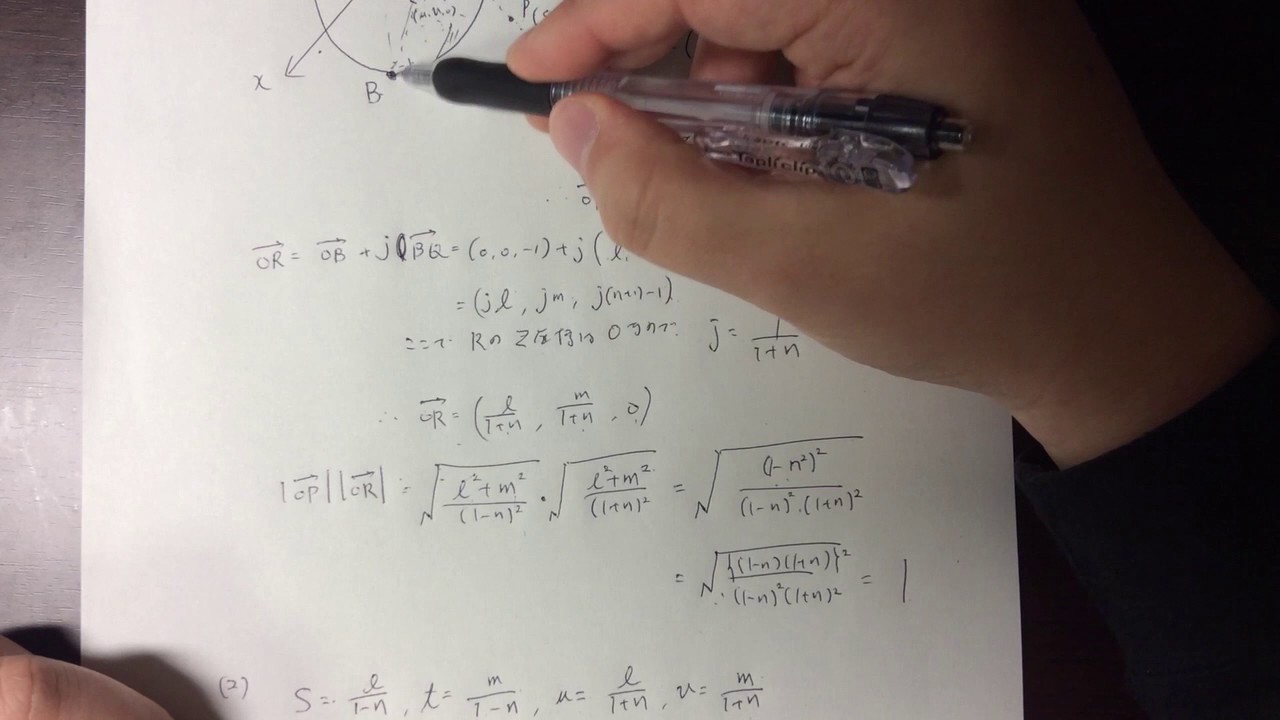 (u,v,0)
P(s
x
z=-1
B
∴ O
OR⃗ = OB⃗ + jBQ⃗ = (0,0,-1)+j(l,
= (jl, jm, j(n+1)-1)
ここで Rの Z座標は 0なので j = 1/(1+n)
∴ OR⃗ = (l/(1+n), m/(1+n), 0)
|OP⃗||OR⃗| = √((l²+m²)/(1-n)²)・√((l²+m²)/(1+n)²) = √((1-n²)²/((1-n)²・(1+n)²))
= √({(1-n)(1+n)}²/((1-n)²(1+n)²)) = 1
(2) S = l/(1-n), t = m/(1-n), u = l/(1+n), v = m/(1+n)
Tapliclip